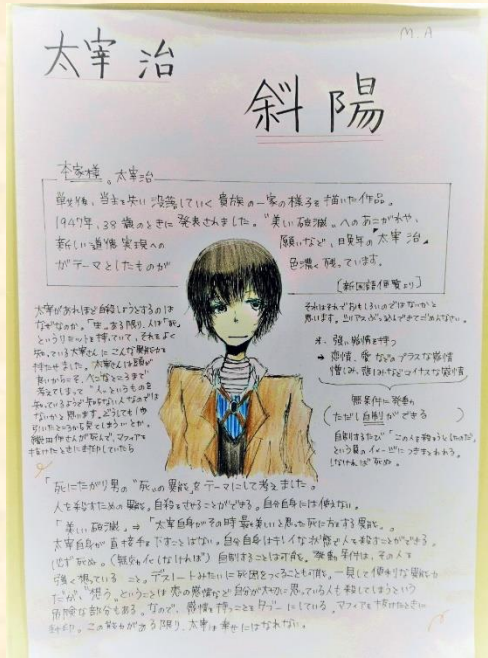 M A
太宰 治
斜陽
本家様。太宰治
戦後、当主を失い没落していく貴族の一家の様子を描いた作品。
1947年、38歳のときに発表されました。"美しい破滅"へのあこがれや、
新しい道徳実現への 願いなど、晩年の「太宰治」
がテーマとしたものが 色濃く残っています。
[新国語便覧より]
太宰があれほど自殺しようとするのは
なぜなのか。「生」ある限り、人は「死」
というリミットを持っていて、それをよく
知っている太宰さんにこんな異能力を
持たせました。太宰さんは頭が
良いからこそ、へんなところまで
考えてしまって"人"というものを
知っているようで知らない人なのでは
ないかと思います。どうしても1歩
引いたところから見てしまうとか。
織田作さんが死んで、マフィアを
抜けたときに
それはそれでおもしろいのではないかと
思います。シリアスぶっこんできてごめんなさい。
強い感情を持つ
⇒ 恋情、愛などのプラスな感情
憎しみ、悲しみなどマイナスな感情
無条件に発動
(ただし自制ができる)
自制するたび「この人を殺そうとしたのだ」
という負のイメージにつきまとわれる。
しなければ死ぬ。
「死にたがり男の"死"の異能」をテーマにして考えました。
人を殺すための異能。自殺をさせることができる。自分自身には使えない。
「美しい破滅」⇒「太宰自身がその時最も美しいと思った死に方をする異能」。
太宰自身が直接手を下すことはない。自分自身はキレイなが態で人を殺すことができる。
必ず死ぬ。(無効化しなければ)自制することは可能。発動条件は、その人を
強く想っていること。デスノートみたいに死因をつくることも可能。一見して便利な異能力
だが、"想う"ということは恋の感情など自分が大切に思っている人も殺してしまうという
危険な部分もある。なので、感情を持つことをタブーにしている。マフィアを抜けたときに
この能力がある限り、太宰は幸せにはなれない。